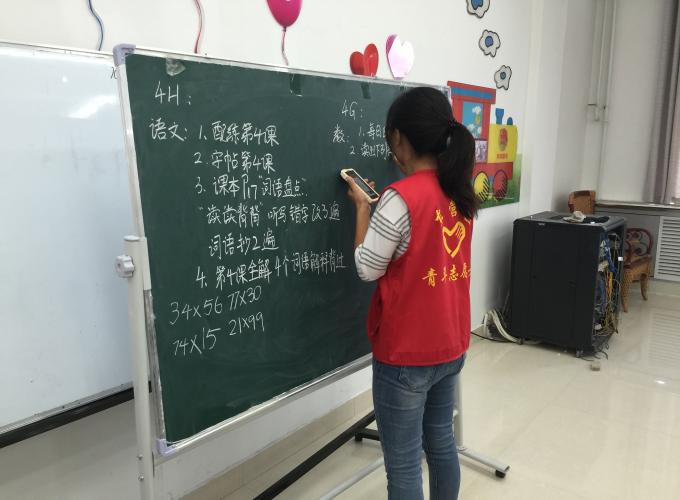 4H：
语文：1. 配练第4课
2. 字帖第4课
3. 课本P17 "词语盘点"
"读读背背" 听写错字改3遍
词语抄2遍
4. 第4课全解4个词语解释背过
34×56 77×30
74×15 21×99
4G：
数：1. 每日
2.
青年志愿